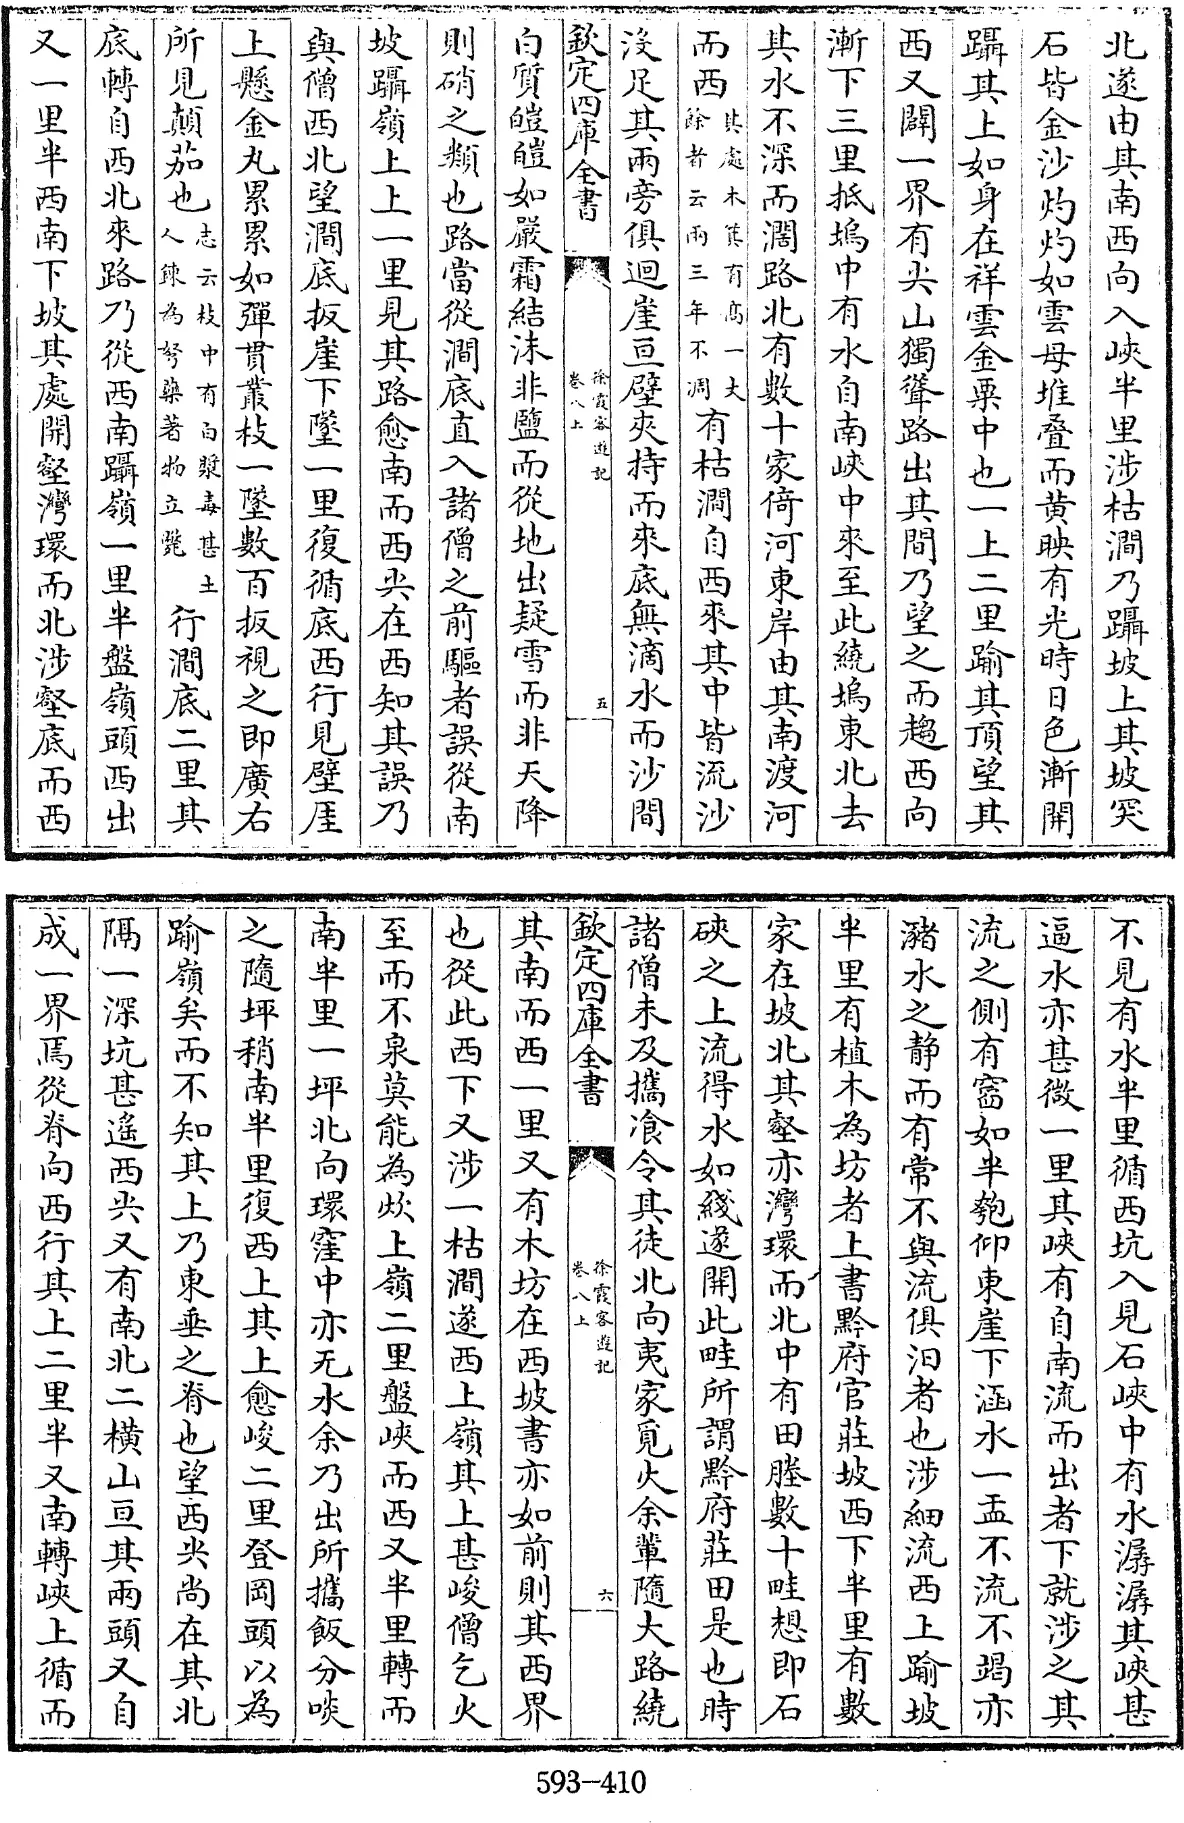 北遂由其南西向入峽半里涉枯澗乃躡坡上其坡突
石皆金沙灼灼如雲母堆疊而黄映有光時日色漸開
躡其上如身在祥雲金粟中也一上二里踰其頂望其
西又闢一界有尖山獨聳路出其間乃望之而趨西向
漸下三里抵塢中有水自南峽中來至此繞塢東北去
其水不深而濶路北有數十家倚河東岸由其南渡河
而西其處木筧有高一丈餘者云兩三年不凋有枯澗自西來其中皆流沙
沒足其兩旁俱迴崖亘壁夾持而來底無滴水而沙間
欽定四庫全書 徐霞客遊記 卷八上 五
白質皚皚如嚴霜結沫非鹽而從地出疑雪而非天降
則硝之類也路當從澗底直入諸僧之前驅者誤從南
坡躡嶺上上一里見其路愈南而西尖在西知其誤乃
與僧西北望澗底扳崖下墜一里復循底西行見壁崖
上懸金丸累累如彈貫叢枝一墜數百扳視之即廣右
所見顛茄也志云枝中有白漿毒甚土人鍊為弩藥著物立斃行澗底二里其
底轉自西北來路乃從西南躡嶺一里半盤嶺頭西出
又一里半西南下坡其處開壑灣環而北涉壑底而西
不見有水半里循西坑入見石峽中有水潺潺其峽甚
逼水亦甚微一里其峽有自南流而出者下就涉之其
流之側有窞如半匏仰東崖下涵水一盂不流不竭亦
瀦水之静而有常不與流俱汨者也涉細流西上踰坡
半里有植木為坊者上書黔府官莊坡西下半里有數
家在坡北其壑亦灣環而北中有田塍數十畦想即石
硤之上流得水如綫遂開此畦所謂黔府莊田是也時
諸僧未及攜飡令其徒北向夷家覓火余輩隨大路繞
欽定四庫全書 徐霞客遊記 卷八上 六
其南而西一里又有木坊在西坡書亦如前則其西界
也從此西下又涉一枯澗遂西上嶺其上甚峻僧乞火
至而不泉莫能為炊上嶺二里盤峽而西又半里轉而
南半里一坪北向環窪中亦无水余乃出所攜飯分啖
之隨坪稍南半里復西上其上愈峻二里登岡頭以為
踰嶺矣而不知其上乃東垂之脊也望西尖尚在其北
隔一深坑甚遙西尖又有南北二横山亘其兩頭又自
成一界焉從脊向西行其上二里半又南轉峽上循而